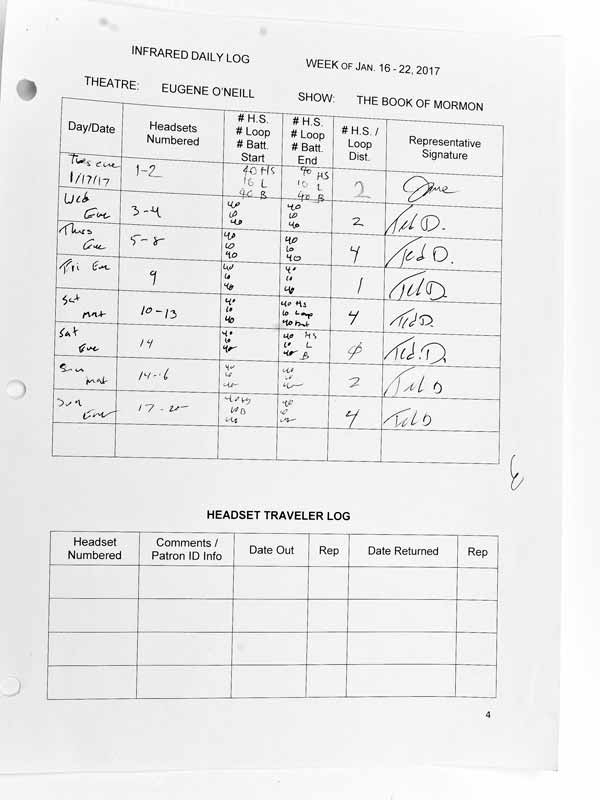 INFRARED DAILY LOG
WEEK OF JAN. 16 - 22, 2017
THEATRE: EUGENE O'NEILL SHOW: THE BOOK OF MORMON
Day/Date
Headsets
Numbered
# H.S.
# Loop
# Batt.
Start
# H.S.
# Loop
# Batt.
End
# H.S. /
Loop
Dist.
Representative
Signature
Tues eve
1/17/17
1-2
40 HS
10 L
40 B
40 HS
10 L
40 B
2
Wed
Eve
3-4
40
10
40
40
10
40
2
Ted D.
Thurs
Eve
5-8
40
10
40
40
10
40
4
Ted D.
Fri Eve
9
40
10
40
40
10
40
1
Ted D.
Sat
mat
10-13
40
10
40
40 HS
10 Loop
40 Bat
4
Ted D.
Sat
Eve
14
40
10
40
40 HS
10 L
40 B
0
Ted. D.
Sun
mat
14-16
40
10
40
40
10
40
2
Ted D
Sun
Eve
17-20
40 HS
40
40
10
40
4
Ted D
HEADSET TRAVELER LOG
Headset
Numbered
Comments /
Patron ID Info
Date Out
Rep
Date Returned
Rep
4